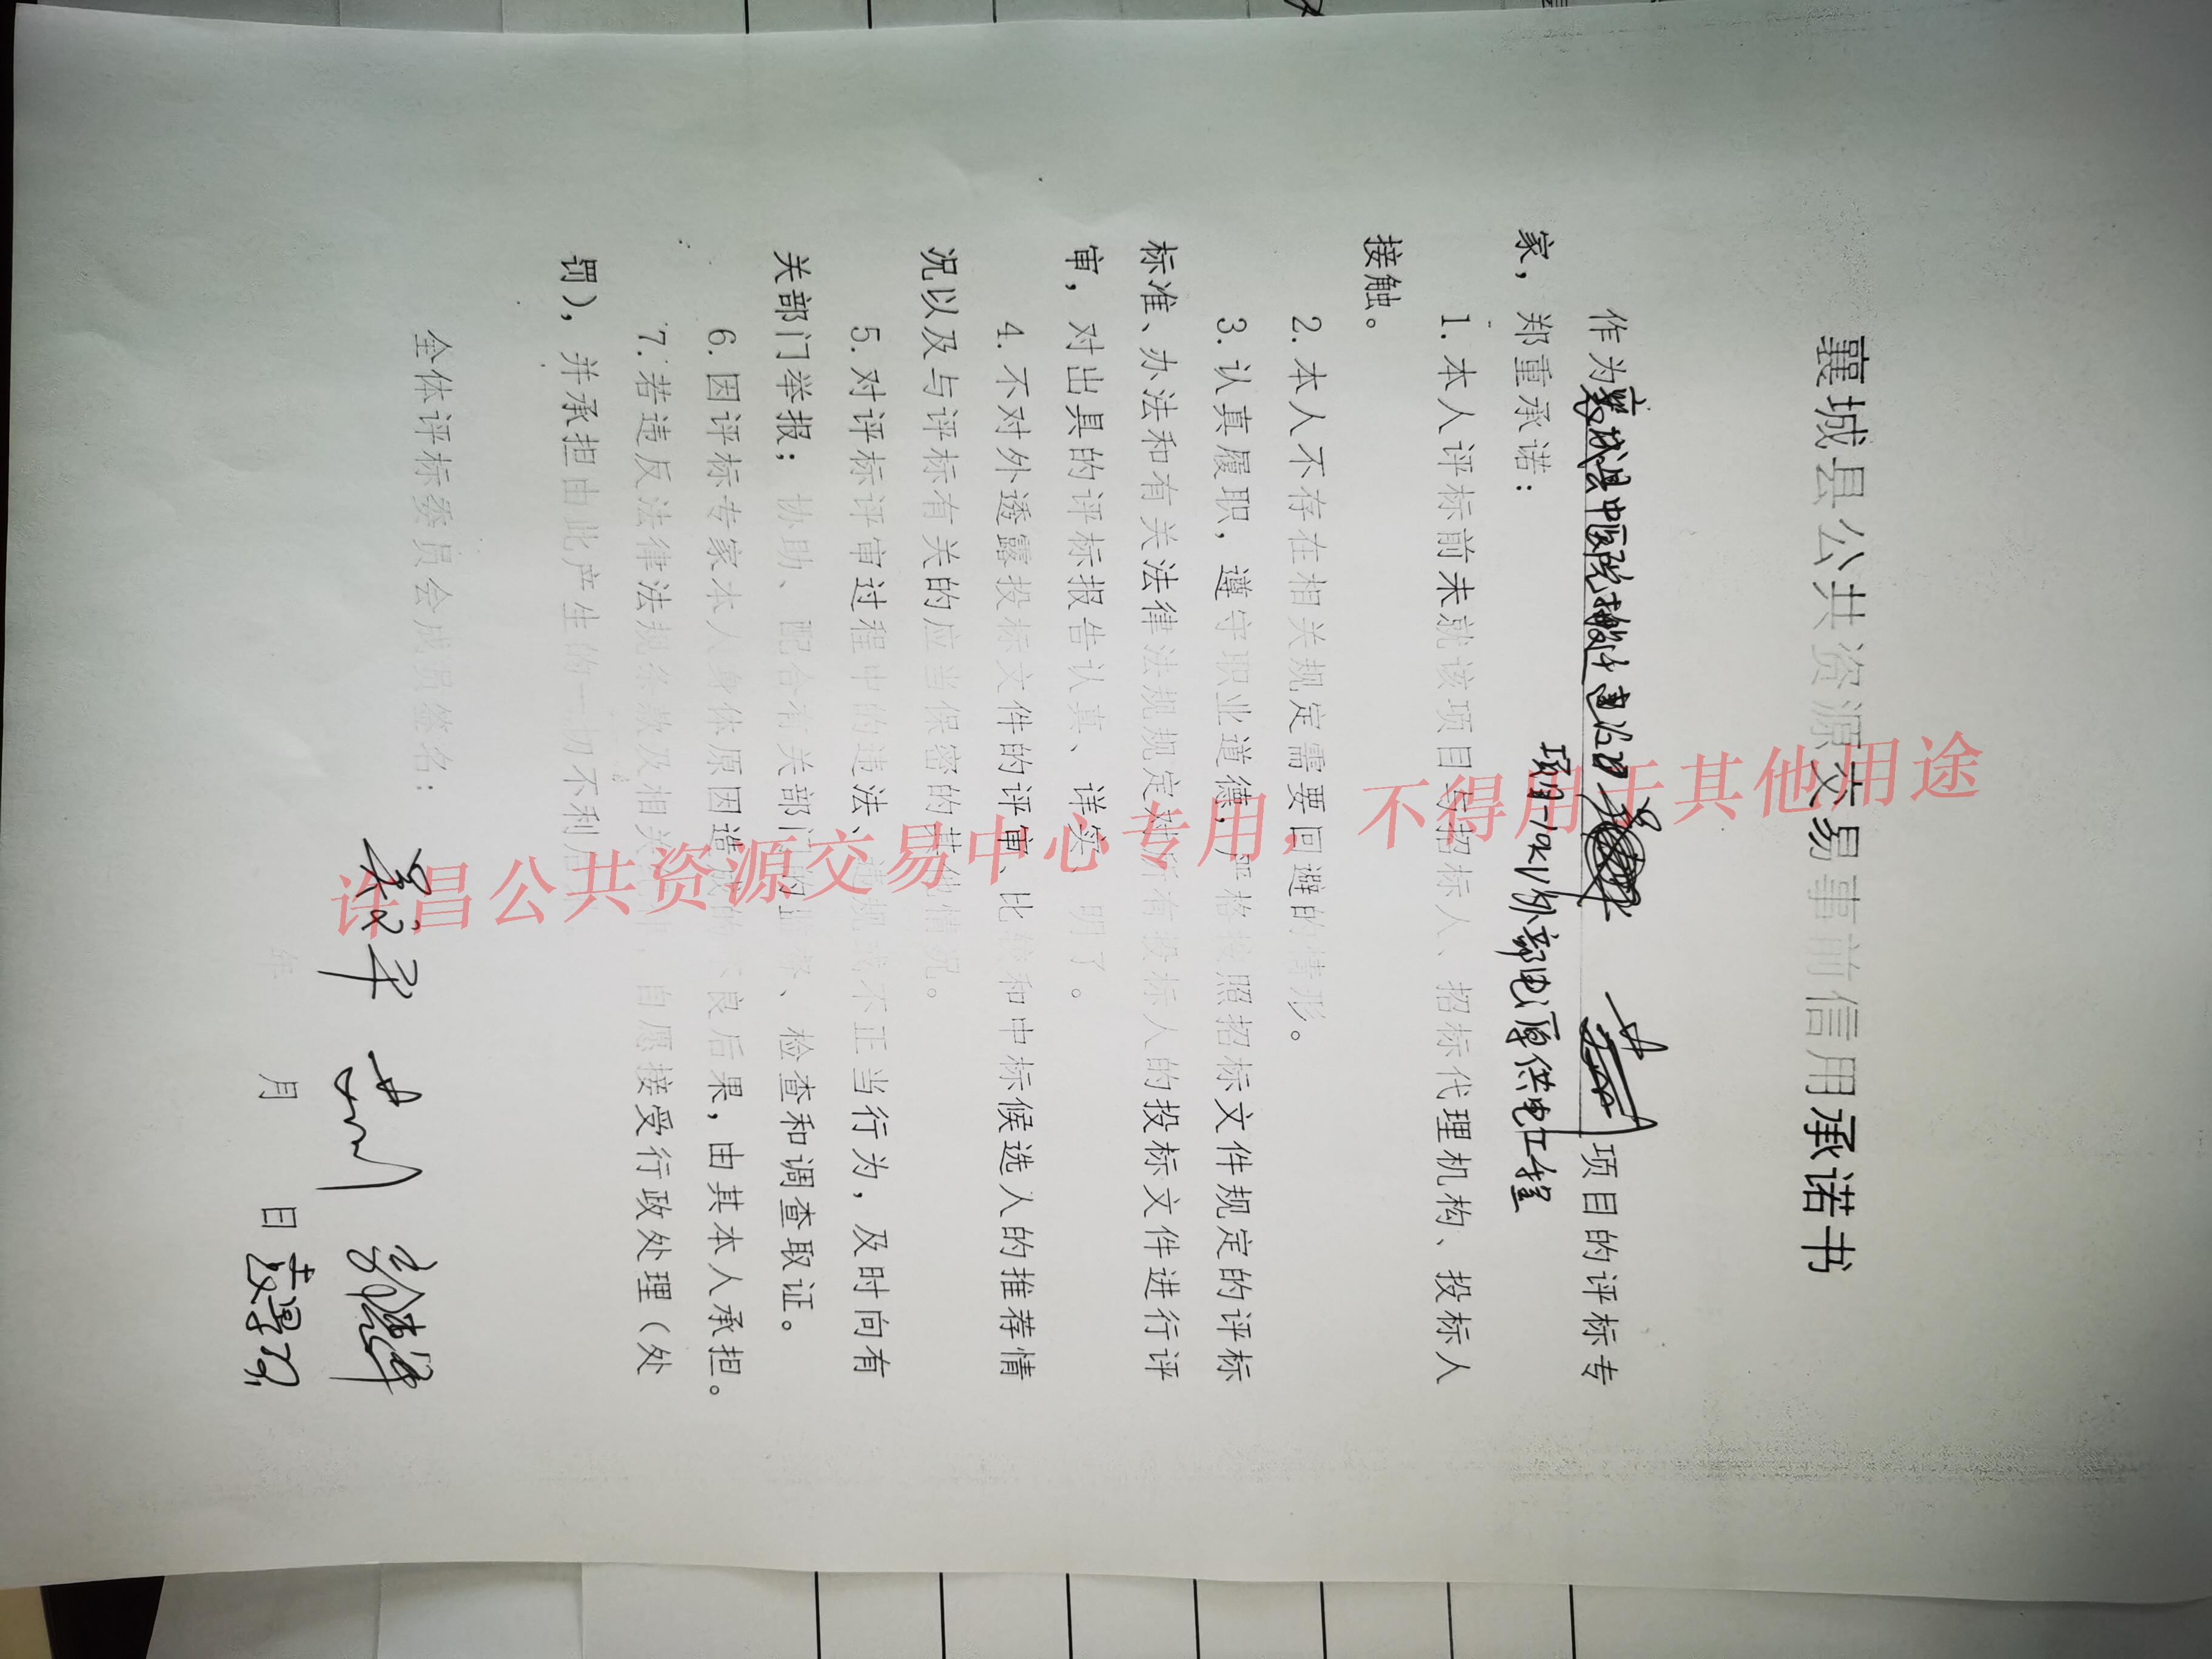 襄城县公共资源交易事前信用承诺书
作为襄城县中医院 项目的评标专
项目10kV外部电源供电工程
家，郑重承诺：
1.本人评标前未就该项目与招标人、招标代理机构、投标人
接触。
2.本人不存在相关规定需要回避的情形。
3.认真履职，遵守职业道德，严格按照招标文件规定的评标
标准、办法和有关法律法规规定对所有投标人的投标文件进行评
审，对出具的评标报告认真、详实、明了。
4.不对外透露投标文件的评审、比较和中标候选人的推荐情
况以及与评标有关的应当保密的其他情况。
5.对评标评审过程中的违法、违规或不正当行为，及时向有
关部门举报；协助、配合有关部门的监督、检查和调查取证。
6.因评标专家本人身体原因造成的不良后果，由其本人承担。
7.若违反法律法规条款及相关 自愿接受行政处理（处
罚），并承担由此产生的一切不利后
全体评标委员会成员签名：
年 月 日
许昌公共资源交易中心专用，不得用于其他用途